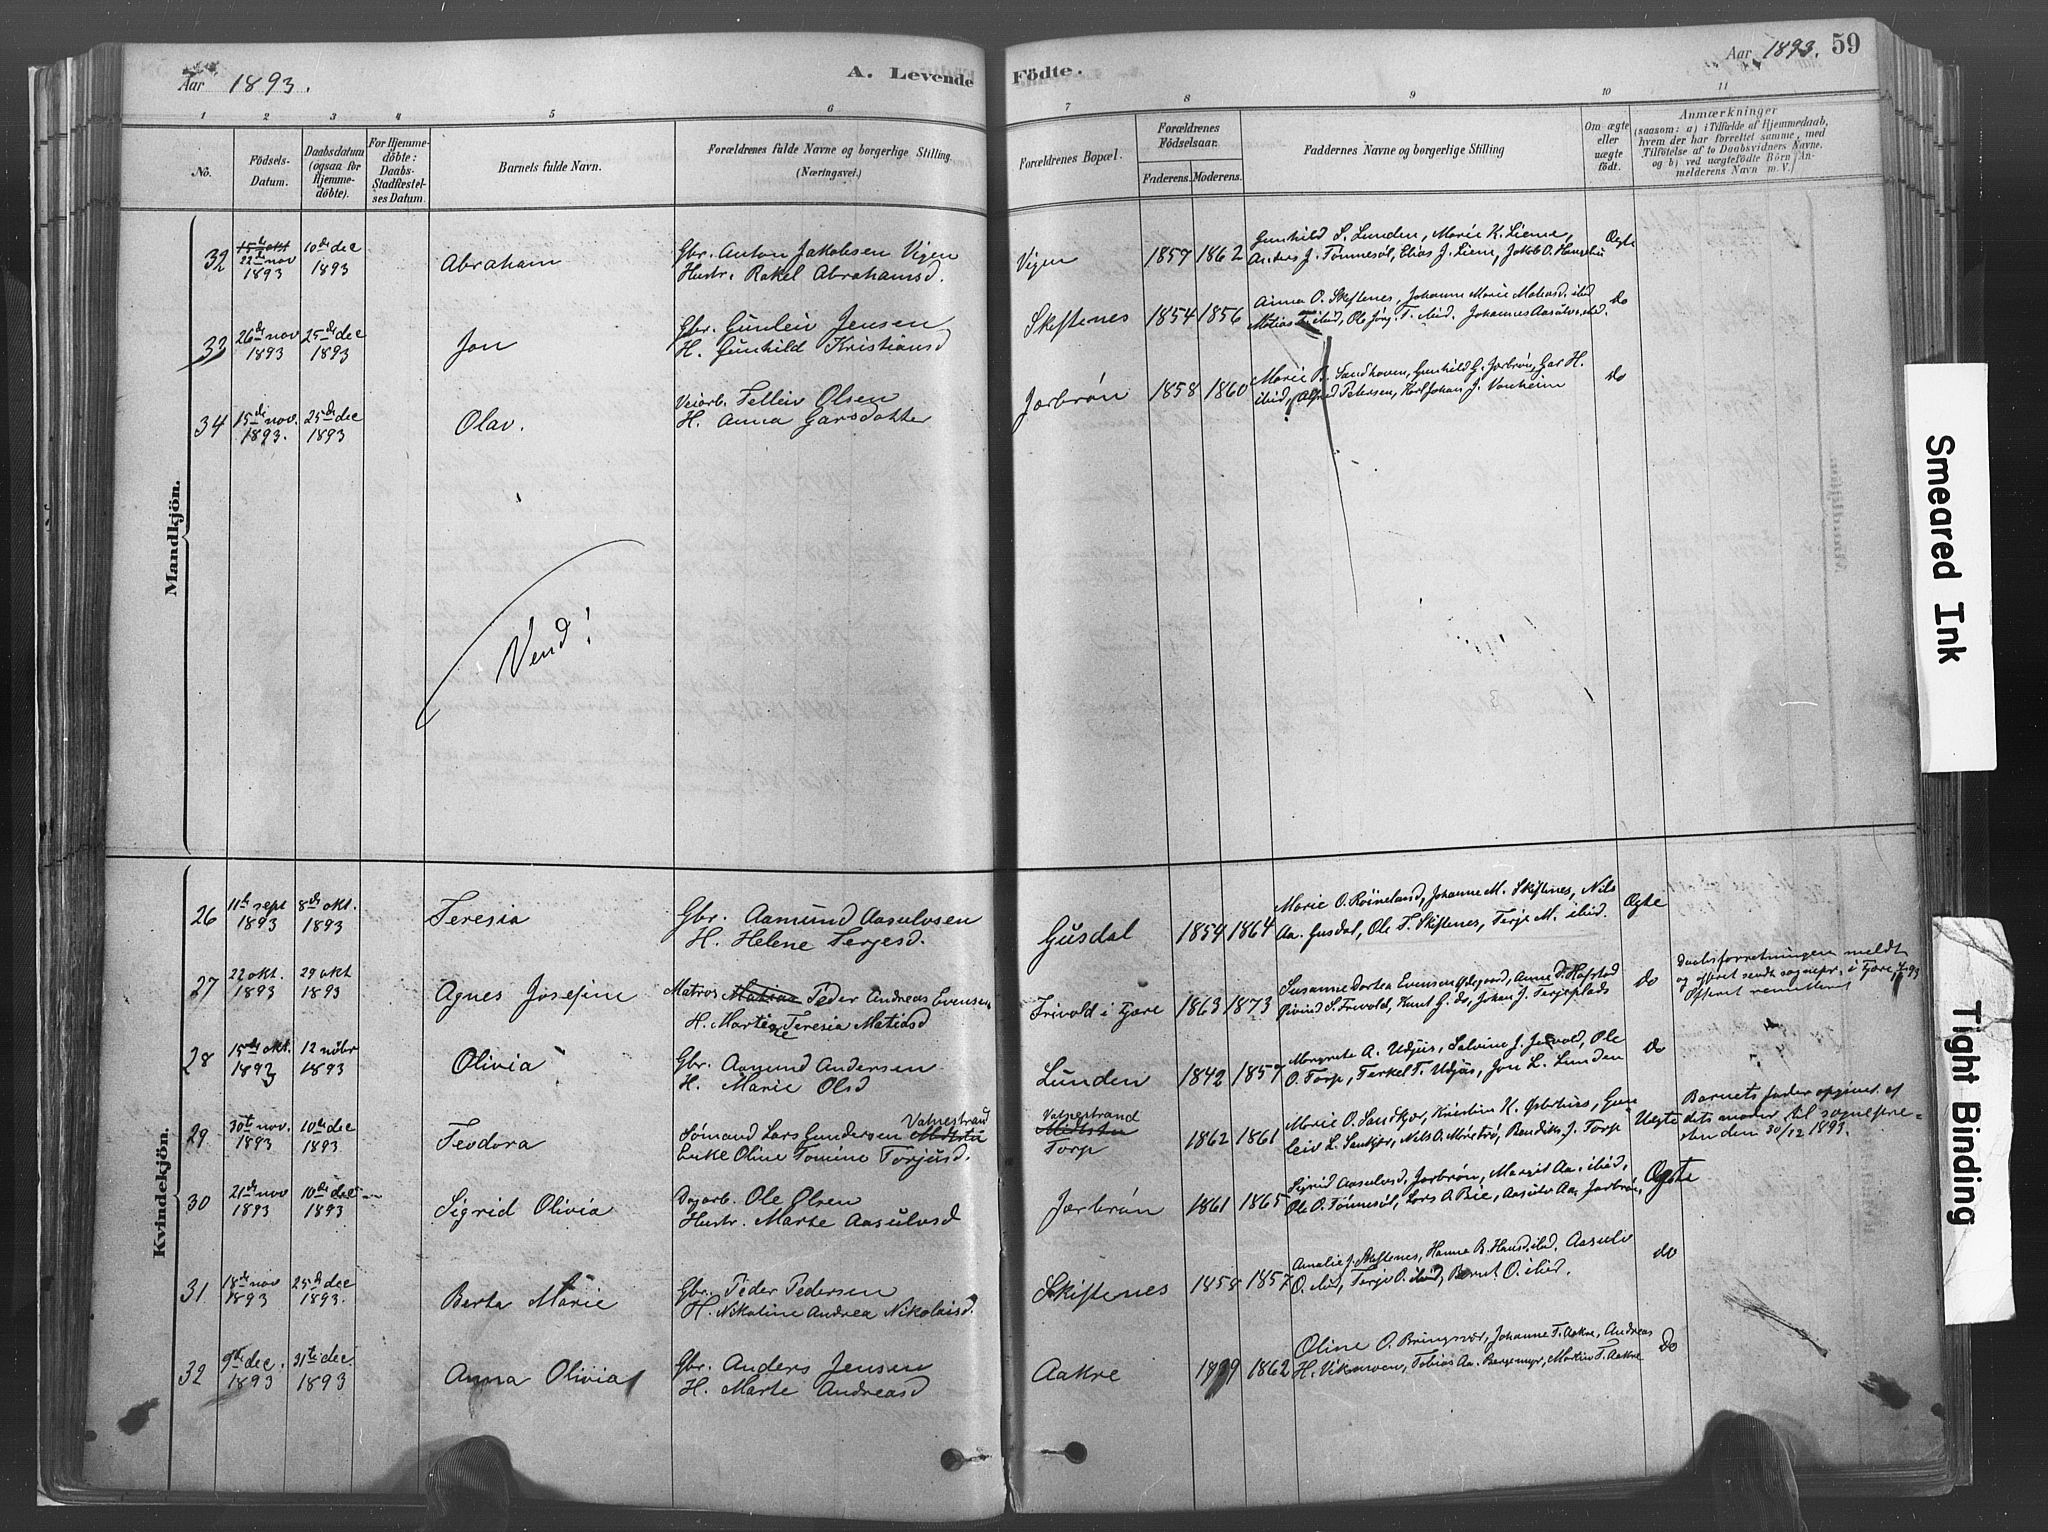 Aar 1893.
A. Levende Födte.
Aar 1893. 59
1 2 3 4 5 6 7 8 9 10 11
No.
Födsels-Datum.
Daabsdatum (ogsaa for Hjemmedöbte).
For Hjemmedöbte: Daabs-Stadfæstelses Datum.
Barnets fulde Navn.
Forældrenes fulde Navne og borgerlige Stilling. (Næringsvei.)
Forældrenes Bopæl.
Forældrenes Födselsaar.
Faderens. Moderens.
Faddernes Navne og borgerlige Stilling
Om ægte eller uægte födt.
Anmærkninger
(saasom: a) i Tilfælde af Hjemmedaab, hvem der har forrettet samme, med Tilföielse af to Daabsvidners Navne. og b) ved uægtefödte Börn Anmelderens Navn m. V.)
Mandkjön.
32 15de okt 22de nov 1893 10de dec 1893 Abraham Gbr. Anton Jakobsen Vigen
Hustr. Rakel Abrahamsd. Vigen 1857 1862 Gunhild S. Lunden, Marie K. Liene,
Anders J. Tönnesöl, Elias J. Liene, Jakob O. Ægte
33 26de nov 1893 25de dec 1893 Jon Gbr. Gunleiv Jensen
H. Gunhild Kristiansd Skiftenes 1854 1856 Anna O. Skiftenes, Johanne Marie Matiasd. ibid
Matias T. ibid, Ole Jörg. T. ibid. Johannes Aasulvs. ibid. do
34 15de nov. 1893. 25de dec 1893 Olav. Veiarb. Telleiv Olsen
H. Anna Garsdatter Jorbrön 1858 1860 Marie Sandhaven, Gunhild G. Jorbrön, Gar H.
ibid, Alfred Petersen, Karl Johan J. Vonheim do
Vend!
Kvindekjön.
26 11te sept 1893 8de okt. 1893 Teresia Gbr. Aamund Aasulvsen
H. Helene Terjesd. Gusdal 1854 1864 Marie O. Röineland, Johanne M. Skiftenes, Nils
Aa. Gusdal, Ole T. Skiftenes, Terje M. ibid. Ægte
27 22 okt. 1893 29 okt 1893 Agnes Josefine Matros Matros Peder Andreas Evensen
H. Martine Teresia Matiasd Trivold i Fjære 1863 1873 Susanne Dortea Evensen Ødegaard, Anne Hofstad
Eivind S. Frivold, Knut G. do, Johan J. Terjeplads do Daabsforretningen meldt
og offeret sendt sognepr. i Fjære
Offeret remitteret
28 15de okt. 1893 12 nobr 1893 Olivia Gbr. Aamund Andersen
H. Marie Olsd Lunden 1842 1857 Margrete A. Udjus, Salvine J. Jervold, Ole
O. Torp, Terkel T. Udjus, Jon L. Lunden do
29 30te nov. 1893 10de dec 1893 Teodora Sömand Lars Gundersen Vatnestrand
Enke Oline Tomine Torjusd. Vatnestrand
Torp 1862 1861 Marie O. Sandkjær, Kristine H. Gun-
leiv L. Sandkjær, Nils O. Bendik J. Torp Uægte Barnets fader opgivet af
dets moder til sognepre-
sten den 30/12 1893.
30 21de nov 1893 10de dec 1893 Sigrid Olivia Dagarb. Ole Olsen
Hustr. Marte Aasulvsd Jorbrön 1861 1865 Sigrid Aasulvsd Jorbrön, Margit Aa. ibid,
Ole O. Tönnesöl, Lars O. Bie, Aasulv Aa. Jorbrön, Ægte
31 18de nov 1893 25de dec 1893. Berta Marie Gbr. Peder Pedersen
H. Nikoline Andrea Nikolaisd. Skiftenes 1858 1857 Amalie J. Skiftenes, Hanna R. Hansd. ibid, Aasulv
O. ibid, Terje O. ibid, Bernt O. ibid. do
32 9de dec. 1893 31te dec. 1893 Anna Olivia Gbr. Anders Jensen
H. Marte Andreasd Aakre 1862 Oline O. Bringsvær, Johanne T. Aakre, Andreas
H. Vikmoen, Tobias Aa. Bergemyr, Martin T. Aakre Do
Smeared Ink
Tight Binding